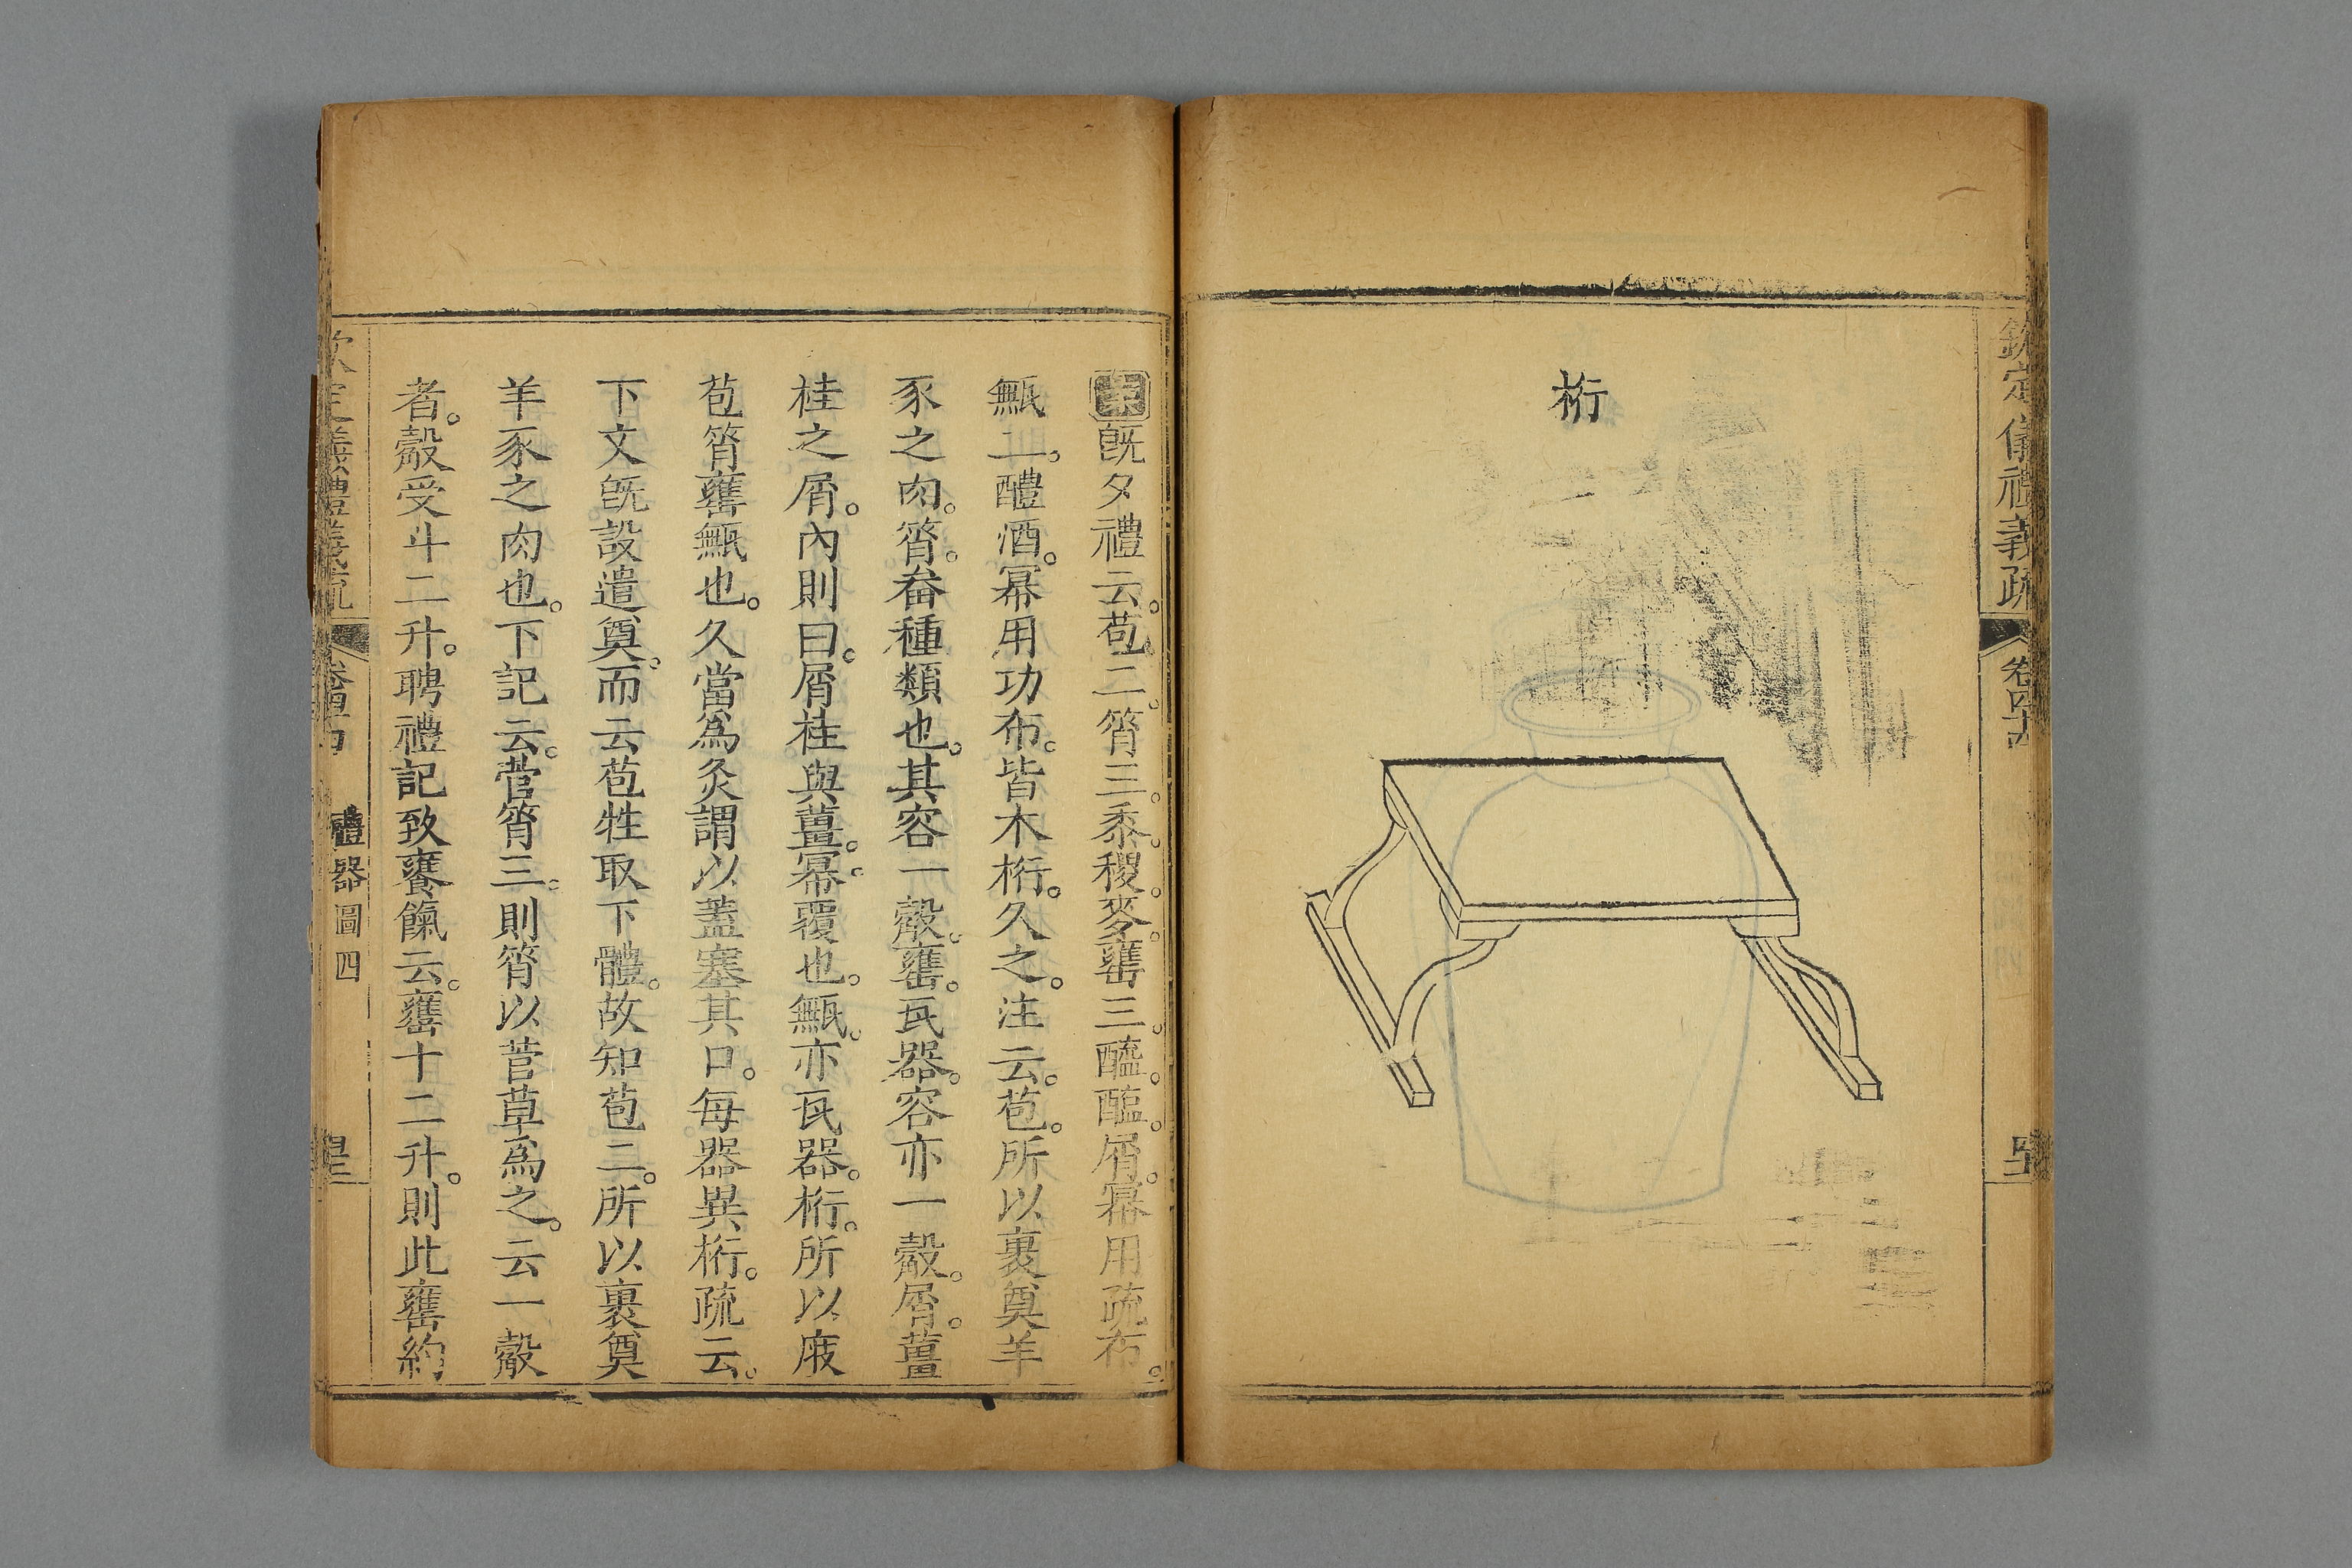 欽定儀禮義疏
桁
旣夕禮云。苞二。筲三。黍。稷。麥。罋三。醯。醢。屑。幂用疏布。
甒二。醴酒。幂用功布。皆木桁。久之。注云。苞。所以裹奠羊
豕之肉。筲。畚種類也。其容一觳。罋。瓦器。容亦一觳。屑。薑
桂之屑。內則曰。屑桂與薑。幂。覆也。甒。亦瓦器。桁。所以庪
苞筲罋甒也。久當爲灸謂以蓋塞其口。每器異桁。疏云。
下文旣設遣奠。而云苞牲取下體。故知苞二。所以裹奠
羊豕之肉也。下記云。菅筲三。則筲以菅草爲之。云一觳
者。觳受斗二升。聘禮記致饔餼云。罋十二升。則此罋約
禮器圖四